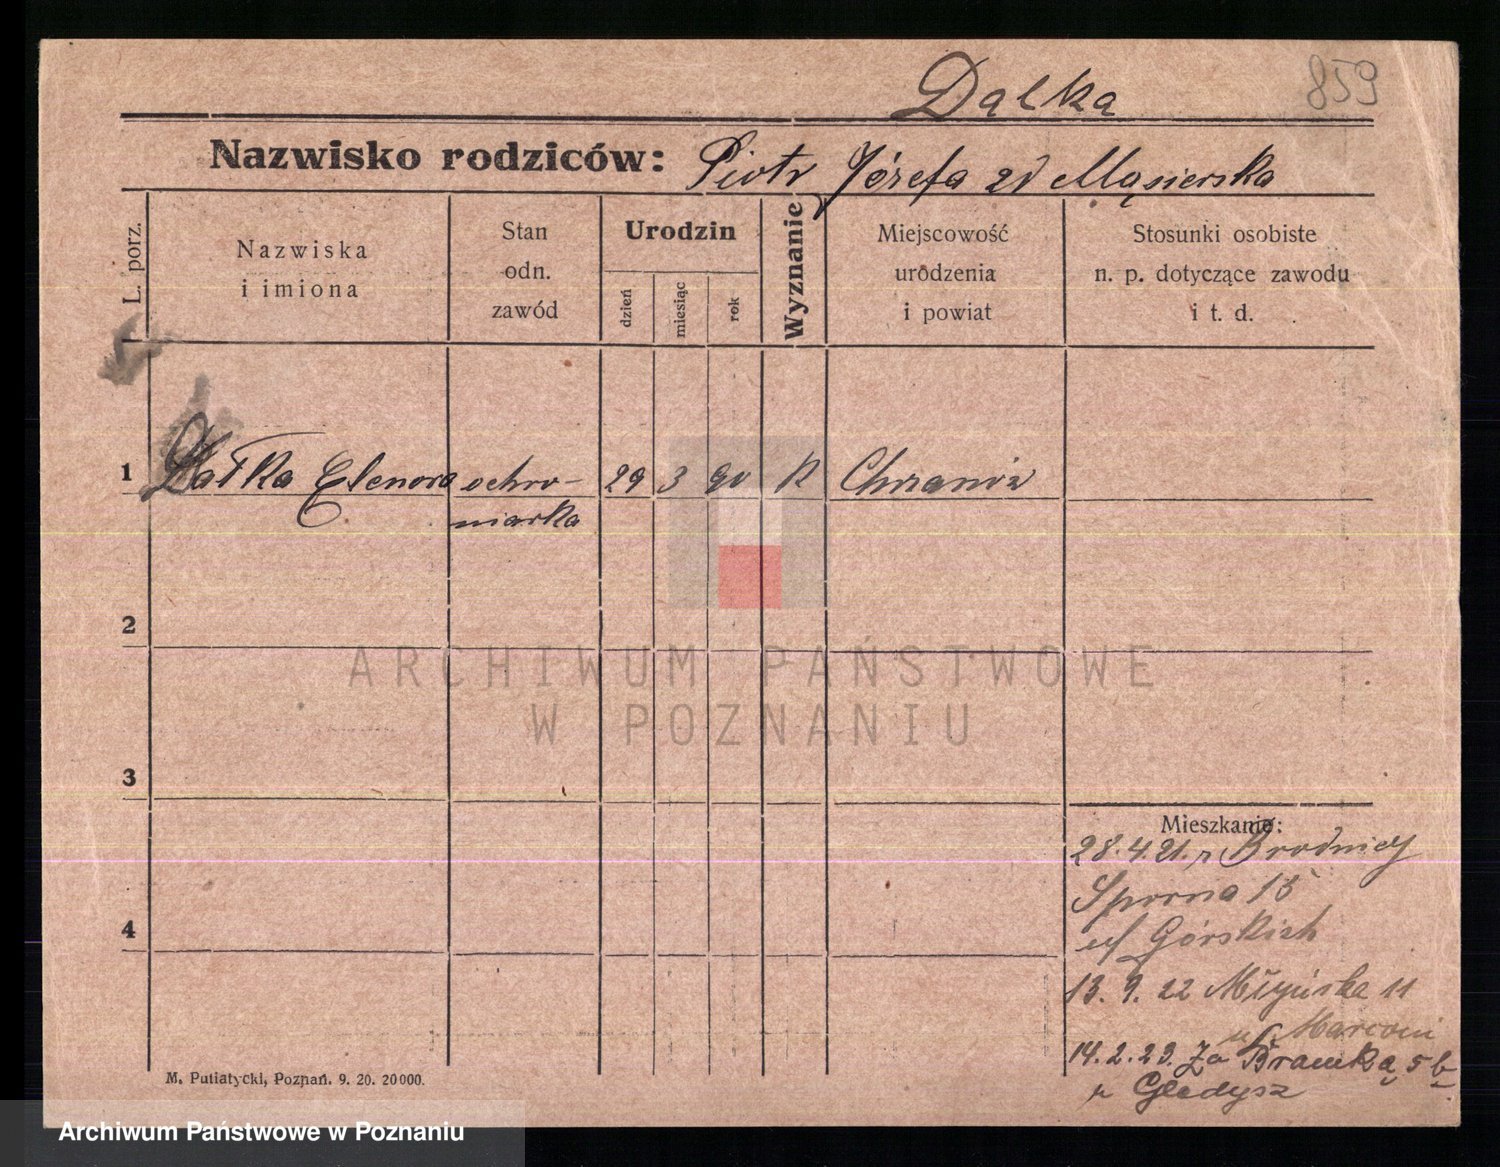 Dalka
859
Nazwisko rodziców: Piotr Józefa zd Mąsierska
L. porz.
Nazwiska
i imiona
Stan
odn.
zawód
Urodzin
dzień
miesiąc
rok
Wyznanie
Miejscowość
urodzenia
i powiat
Stosunki osobiste
n. p. dotyczące zawodu
i t. d.
1 Dałka Elenora ochro- 29 3 90 K Chrzanów
niarka
2
ARCHIWUM PAŃSTWOWE
W POZNANIU
3
Mieszkanie:
28.4.21. z Brodnicy
Sporna 15
u/ Górskich
4
13. 9. 22 Młyńska 11
u Marconi
14. 2. 23. Za Bramką 5 b
Gledysz
M. Putiatycki, Poznań. 9. 20. 20000.
Archiwum Państwowe w Poznaniu